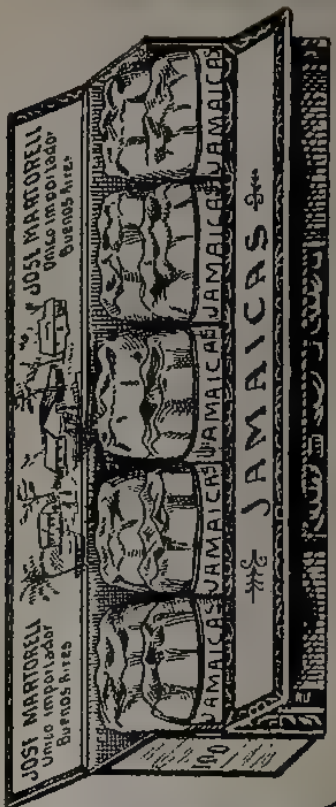 JOSE MARTORELL
Unico Importador
Buenos Aires
JOSE MARTORELL
Unico Importador
Buenos Aires
JAMAICAS
JAMAICAS
JAMAICAS
JAMAICAS
JAMAICAS
JAMAICAS
100
RU